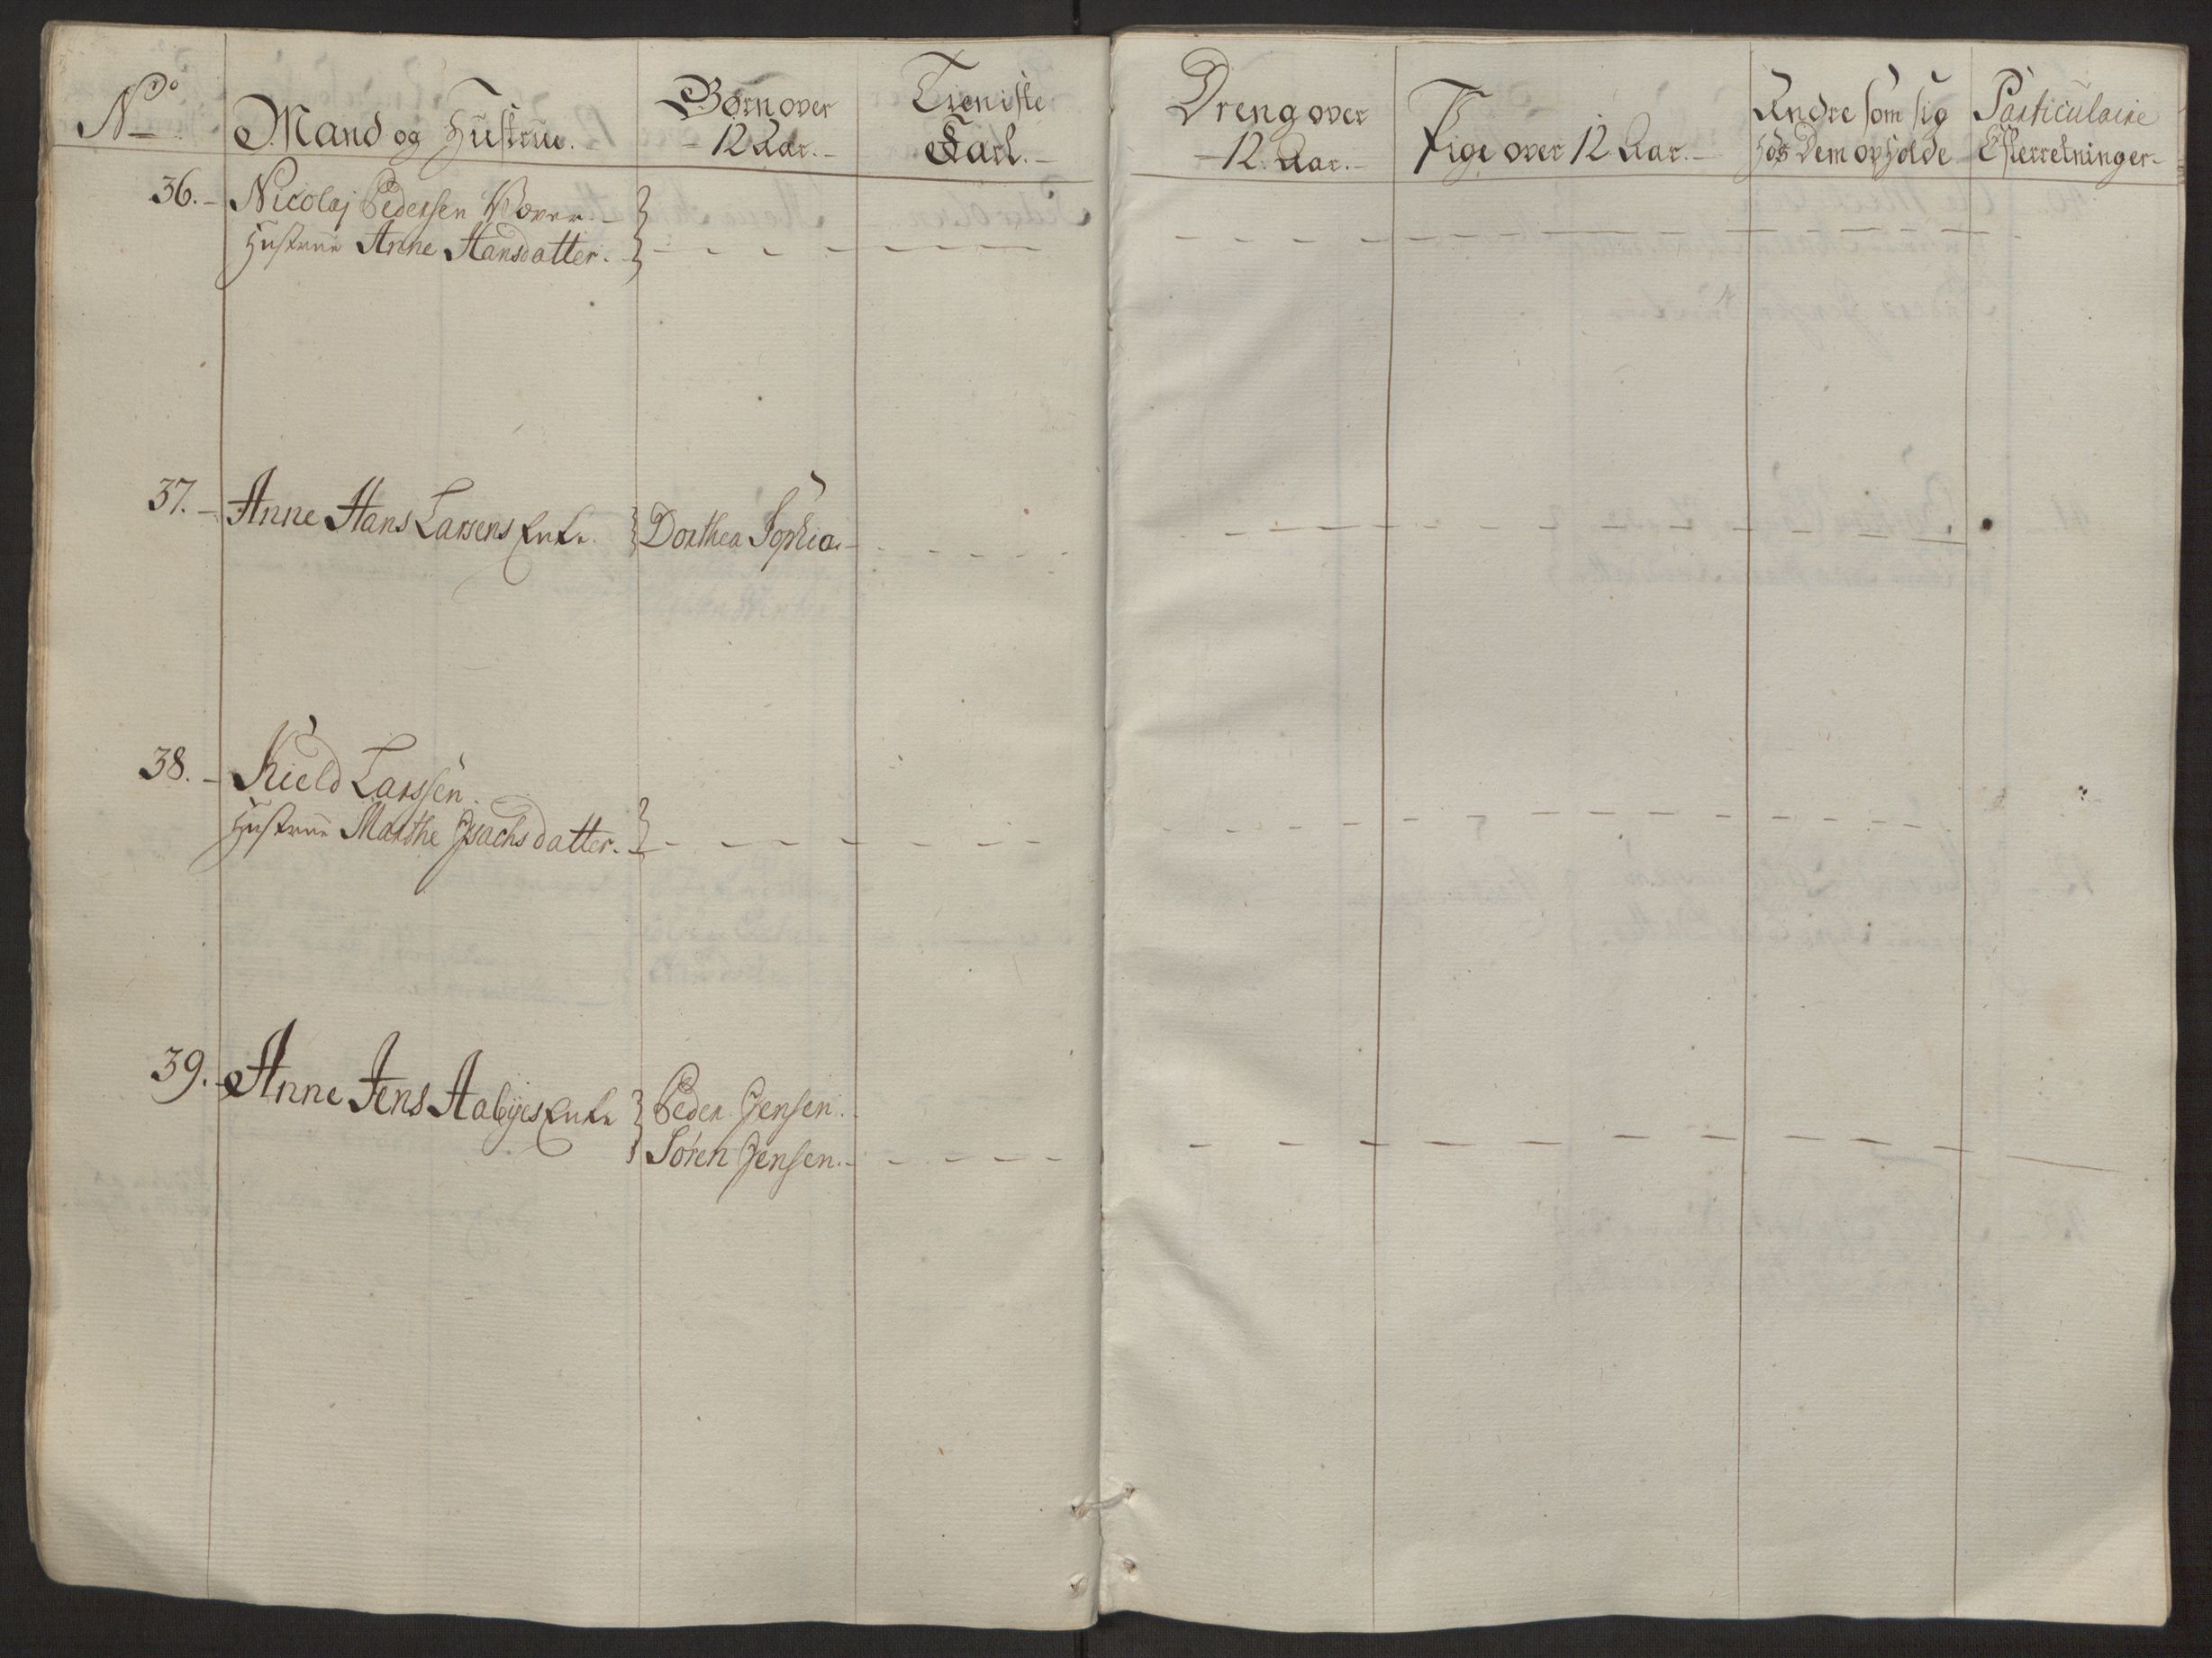 No
Mand og Hustrue.
Børn over
12 Aar.
Tieniste
Karl.
Dreng over
12. Aar.
Pige over 12 Aar.
Andre som sig
hos Dem opholde
Particulaire
Efterretninger
36. Nicolaj Pedersen
Hustrue Anne Hansdatter.
37. Anne Hans Larsens Enke. Dorthea Sophia
38. Kield Larssen.
Hustrue Marthe Isachsdatter.
39. Anne Jens Aabÿes Enke Peder Jensen.
Søren Jensen.